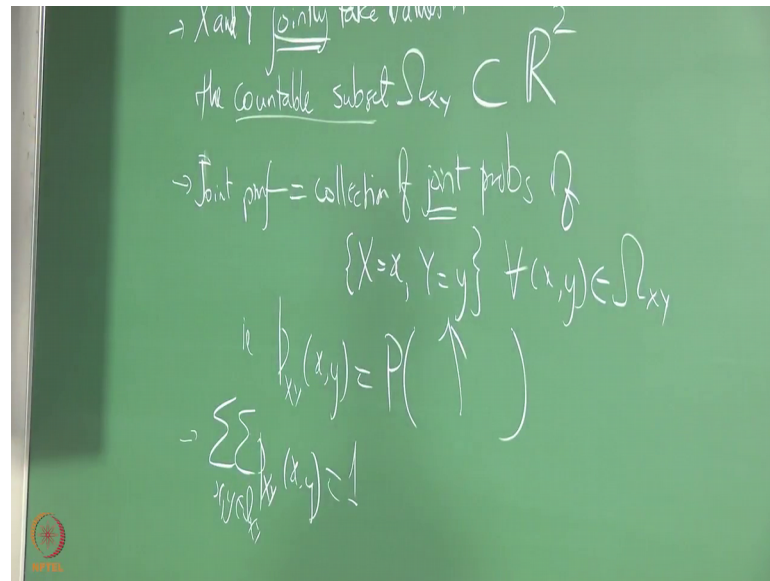 → X and Y jointly take values in
the countable subset Ω_XY ⊂ ℝ²
→ Joint pmf = collection of joint probs of
{X=x, Y=y} ∀ (x,y) ∈ Ω_XY
ie p_XY(x,y) = P( ↑ )
→ ΣΣ p_XY(x,y) = 1
x,y∈Ω_XY
NPTEL